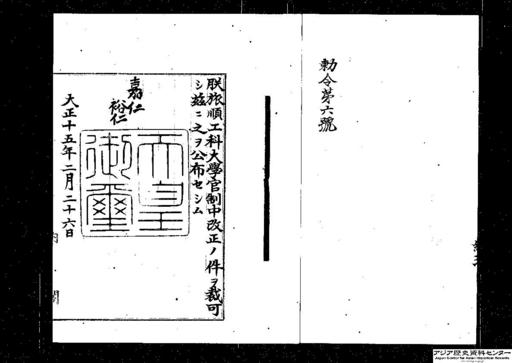 勅令第六號
朕旅順工科大學官制中改正ノ件ヲ裁可
シ茲ニ之ヲ公布セシム
嘉仁
裕仁
天皇
御璽
大正十五年二月二十六日
内閣
アジア歴史資料センター
Japan Center for Asian Historical Records